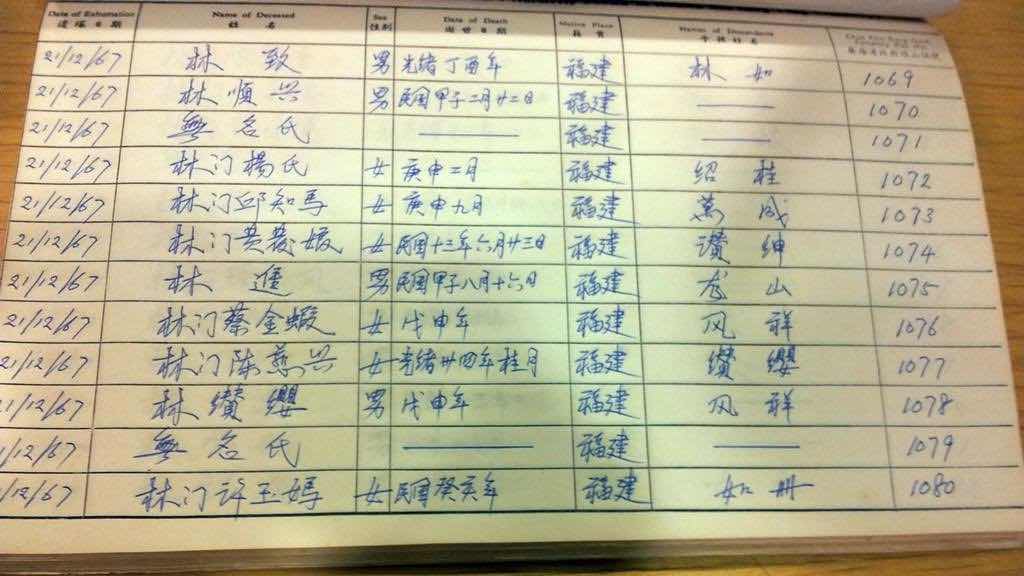 Date of Exhumation Name of Deceased Sex Date of Death Native Place Names of Descendants
姓名 性別 籍貫
21/12/67 林致 男 光緒丁酉年 福建 林如 1069
21/12/67 林順兴 男 民国甲子二月廿二日 福建 — 1070
21/12/67 無名氏 — 福建 — 1071
21/12/67 林门楊氏 女 庚申二月 福建 绍桂 1072
21/12/67 林门邱知馬 女 庚申九月 福建 萬成 1073
21/12/67 林门黄發嫒 女 民国十三年六月廿三日 福建 讚绅 1074
21/12/67 林進 男 民国甲子八月十六日 福建 龙山 1075
21/12/67 林门蔡金蝦 女 戊申年 福建 风祥 1076
21/12/67 林门陈慈兴 女 光緒廿四年桂月 福建 纘纓 1077
21/12/67 林纘纓 男 戊申年 福建 风祥 1078
1/12/67 無名氏 — 福建 — 1079
1/12/67 林门許玉嫣 女 民国癸亥年 福建 如册 1080